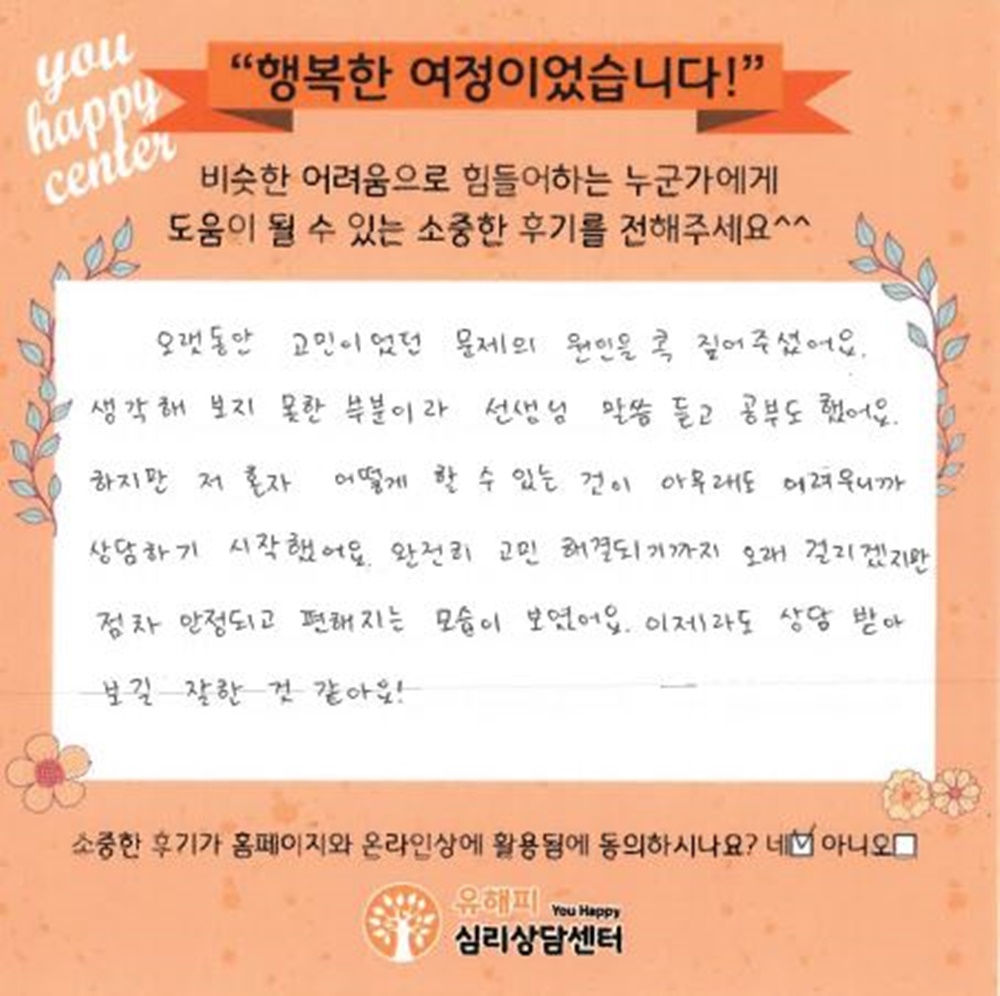 you
happy
center
“행복한 여정이었습니다!”
비슷한 어려움으로 힘들어하는 누군가에게
도움이 될 수 있는 소중한 후기를 전해주세요^^
오랫동안 고민이었던 문제의 원인을 콕 짚어주셨어요.
생각해 보지 못한 부분이라 선생님 말씀 듣고 공부도 했어요.
하지만 저 혼자 어떻게 할 수 있는 건이 아무래도 어려우니까
상담하기 시작했어요. 완전히 고민 해결되기까지 오래 걸리겠지만
점차 안정되고 편해지는 모습이 보였어요. 이제라도 상담 받아
보길 잘한 것 같아요!
소중한 후기가 홈페이지와 온라인상에 활용됨에 동의하시나요? 네 아니오
유해피 You Happy
심리상담센터